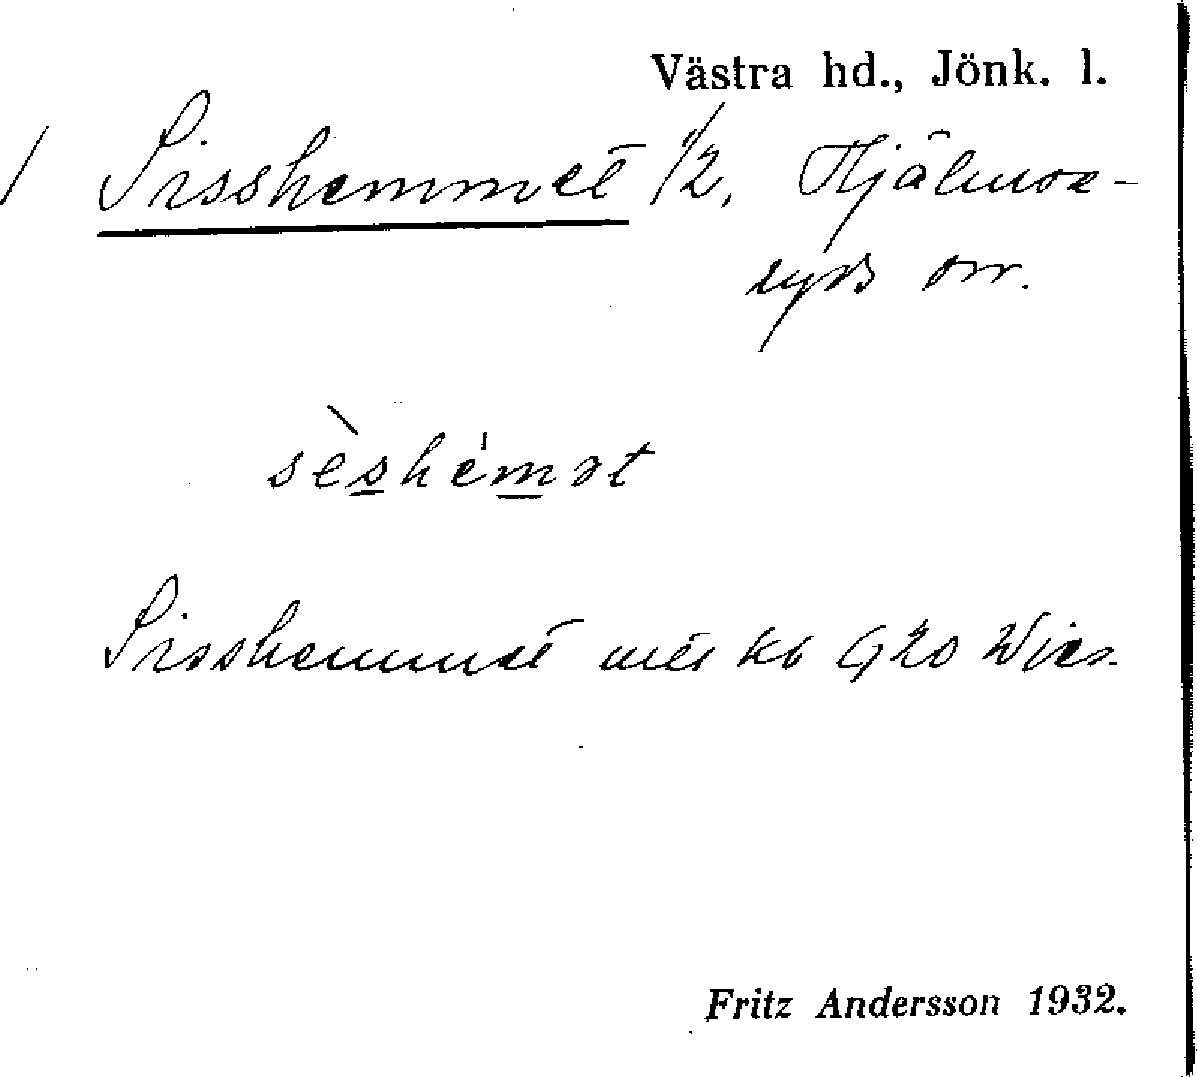 Västra hd., Jönk. l.
/ Sisshemmet 1/2, Hjälmse-
ryds sn.
sèshémət
Sisshemmet
Fritz Andersson 1932.